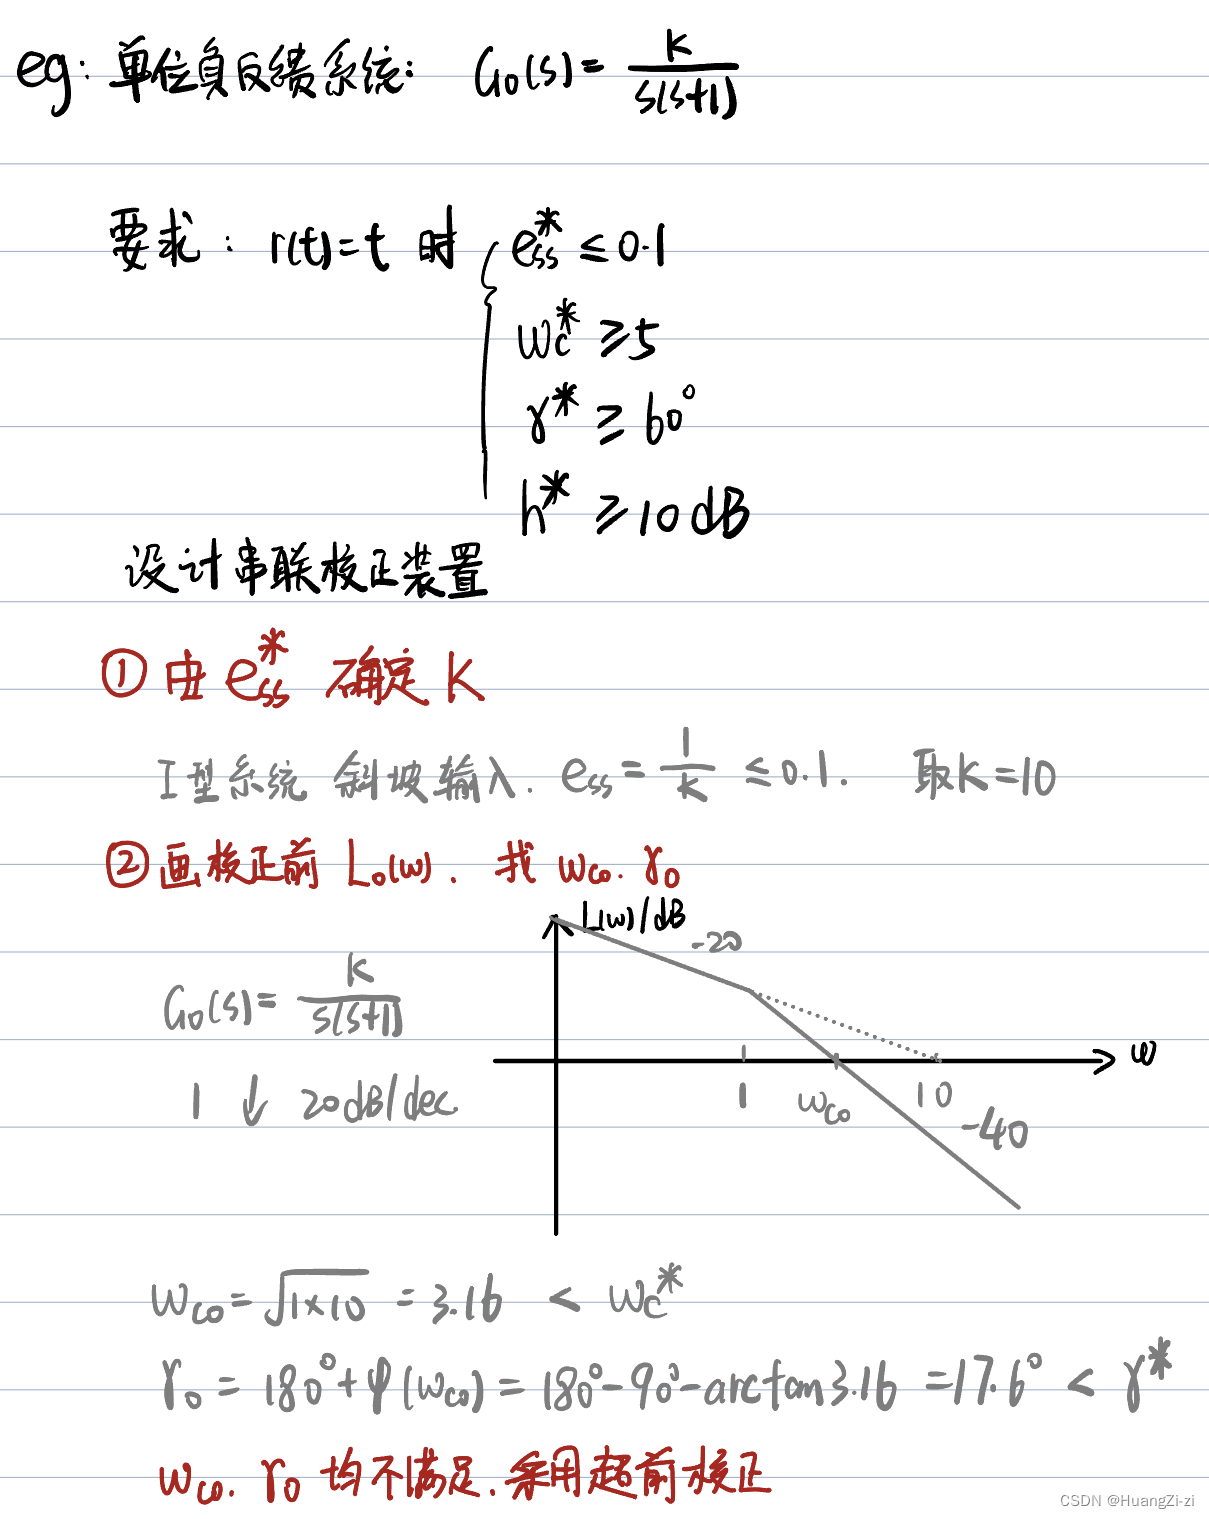 eg: 单位负反馈系统: G₀(s)= K/s(s+1)
要求: r(t)=t 时 { ess* ≤0.1
ωc* ≥5
γ* ≥ 60°
h* ≥10dB
设计串联校正装置
① 由 ess* 确定 K
I型系统 斜坡输入. ess= 1/K ≤0.1. 取K=10
② 画校正前 L₀(ω). 找 ωc₀. γ₀
L(ω)/dB
-20
G₀(s)= K/s(s+1)
ω
1 ↓ 20dB/dec
1 ωc₀ 10
-40
ωc₀=√1×10 =3.16 < ωc*
γ₀ = 180°+φ(ωc₀)=180°-90°-arctan3.16 =17.6° < γ*
ωc₀. γ₀ 均不满足.采用超前校正
CSDN @HuangZi-zi